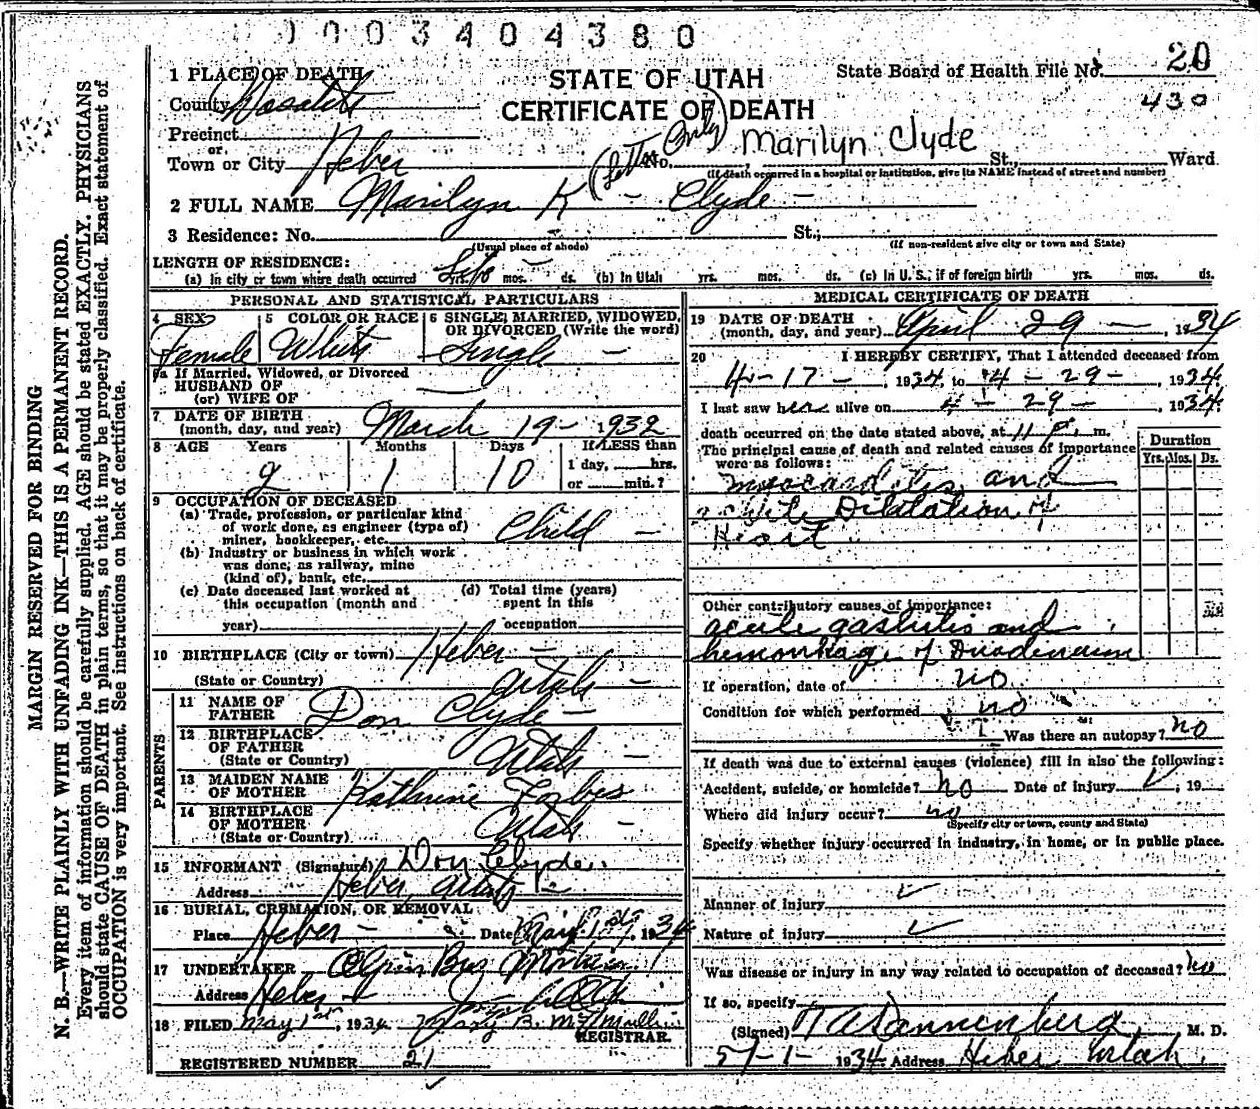 1003404380
1 PLACE OF DEATH
STATE OF UTAH
CERTIFICATE OF DEATH
State Board of Health File No. 20
430
County Wasatch
Precinct
or
Town or City Heber
(Letter Only) No. Marilyn Clyde St., Ward
(If death occurred in a hospital or institution, give its NAME instead of street and number)
2 FULL NAME Marilyn K - Clyde -
3 Residence: No. St.,
(Usual place of abode) (If non-resident give city or town and State)
LENGTH OF RESIDENCE:
(a) In city or town where death occurred Life mos. ds. (b) In Utah yrs. mos. ds. (c) In U. S., if of foreign birth yrs. mos. ds.
PERSONAL AND STATISTICAL PARTICULARS
4 SEX Female
5 COLOR OR RACE White
6 SINGLE, MARRIED, WIDOWED, OR DIVORCED (Write the word) Single -
6a If Married, Widowed, or Divorced
HUSBAND OF
(or) WIFE OF
7 DATE OF BIRTH
(month, day, and year) March 19 - 1932
8 AGE Years Months Days If LESS than
2 1 10 1 day, hrs.
or min.?
9 OCCUPATION OF DECEASED
(a) Trade, profession, or particular kind
of work done, as engineer (type of)
miner, bookkeeper, etc. Child -
(b) Industry or business in which work
was done, as railway, mine
(kind of), bank, etc.
(c) Date deceased last worked at (d) Total time (years)
this occupation (month and spent in this
year) occupation
10 BIRTHPLACE (City or town) Heber -
(State or Country) Utah -
PARENTS
11 NAME OF
FATHER Don Clyde -
12 BIRTHPLACE
OF FATHER Utah -
(State or Country)
13 MAIDEN NAME
OF MOTHER Katherine Forbes
14 BIRTHPLACE
OF MOTHER Utah -
(State or Country)
15 INFORMANT (Signature) Don Clyde
Address Heber Utah
16 BURIAL, CREMATION, OR REMOVAL
Place Heber - Date May 1934
17 UNDERTAKER Olpin Bros Mortuary
Address Heber
18 FILED May 1st, 1934 Mary B. McMullin
REGISTRAR.
REGISTERED NUMBER 21
MEDICAL CERTIFICATE OF DEATH
19 DATE OF DEATH
(month, day, and year) April 29 - , 1934
20 I HEREBY CERTIFY, That I attended deceased from
4 - 17 - , 1934, to 4 - 29 - , 1934
I last saw her alive on 4 - 29 - , 1934
death occurred on the date stated above, at 11 P. m.
The principal cause of death and related causes of importance
were as follows:
Duration
Yrs. Mos. Ds.
myocarditis and
acute Dilatation of
Heart
Other contributory causes of importance:
acute gastritis and
hemorrhage of Duodenum
If operation, date of no
Condition for which performed no
Was there an autopsy? no
If death was due to external causes (violence) fill in also the following:
Accident, suicide, or homicide? no Date of injury , 19
Where did injury occur? no
(Specify city or town, county and State)
Specify whether injury occurred in industry, in home, or in public place.
Manner of injury
Nature of injury
Was disease or injury in any way related to occupation of deceased? no
If so, specify
(Signed) Dannenberg, M. D.
5-1- 1934 Address Heber Utah.
MARGIN RESERVED FOR BINDING
N. B.—WRITE PLAINLY WITH UNFADING INK—THIS IS A PERMANENT RECORD.
Every item of information should be carefully supplied. AGE should be stated EXACTLY. PHYSICIANS
should state CAUSE OF DEATH in plain terms, so that it may be properly classified. Exact statement of
OCCUPATION is very important. See instructions on back of certificate.